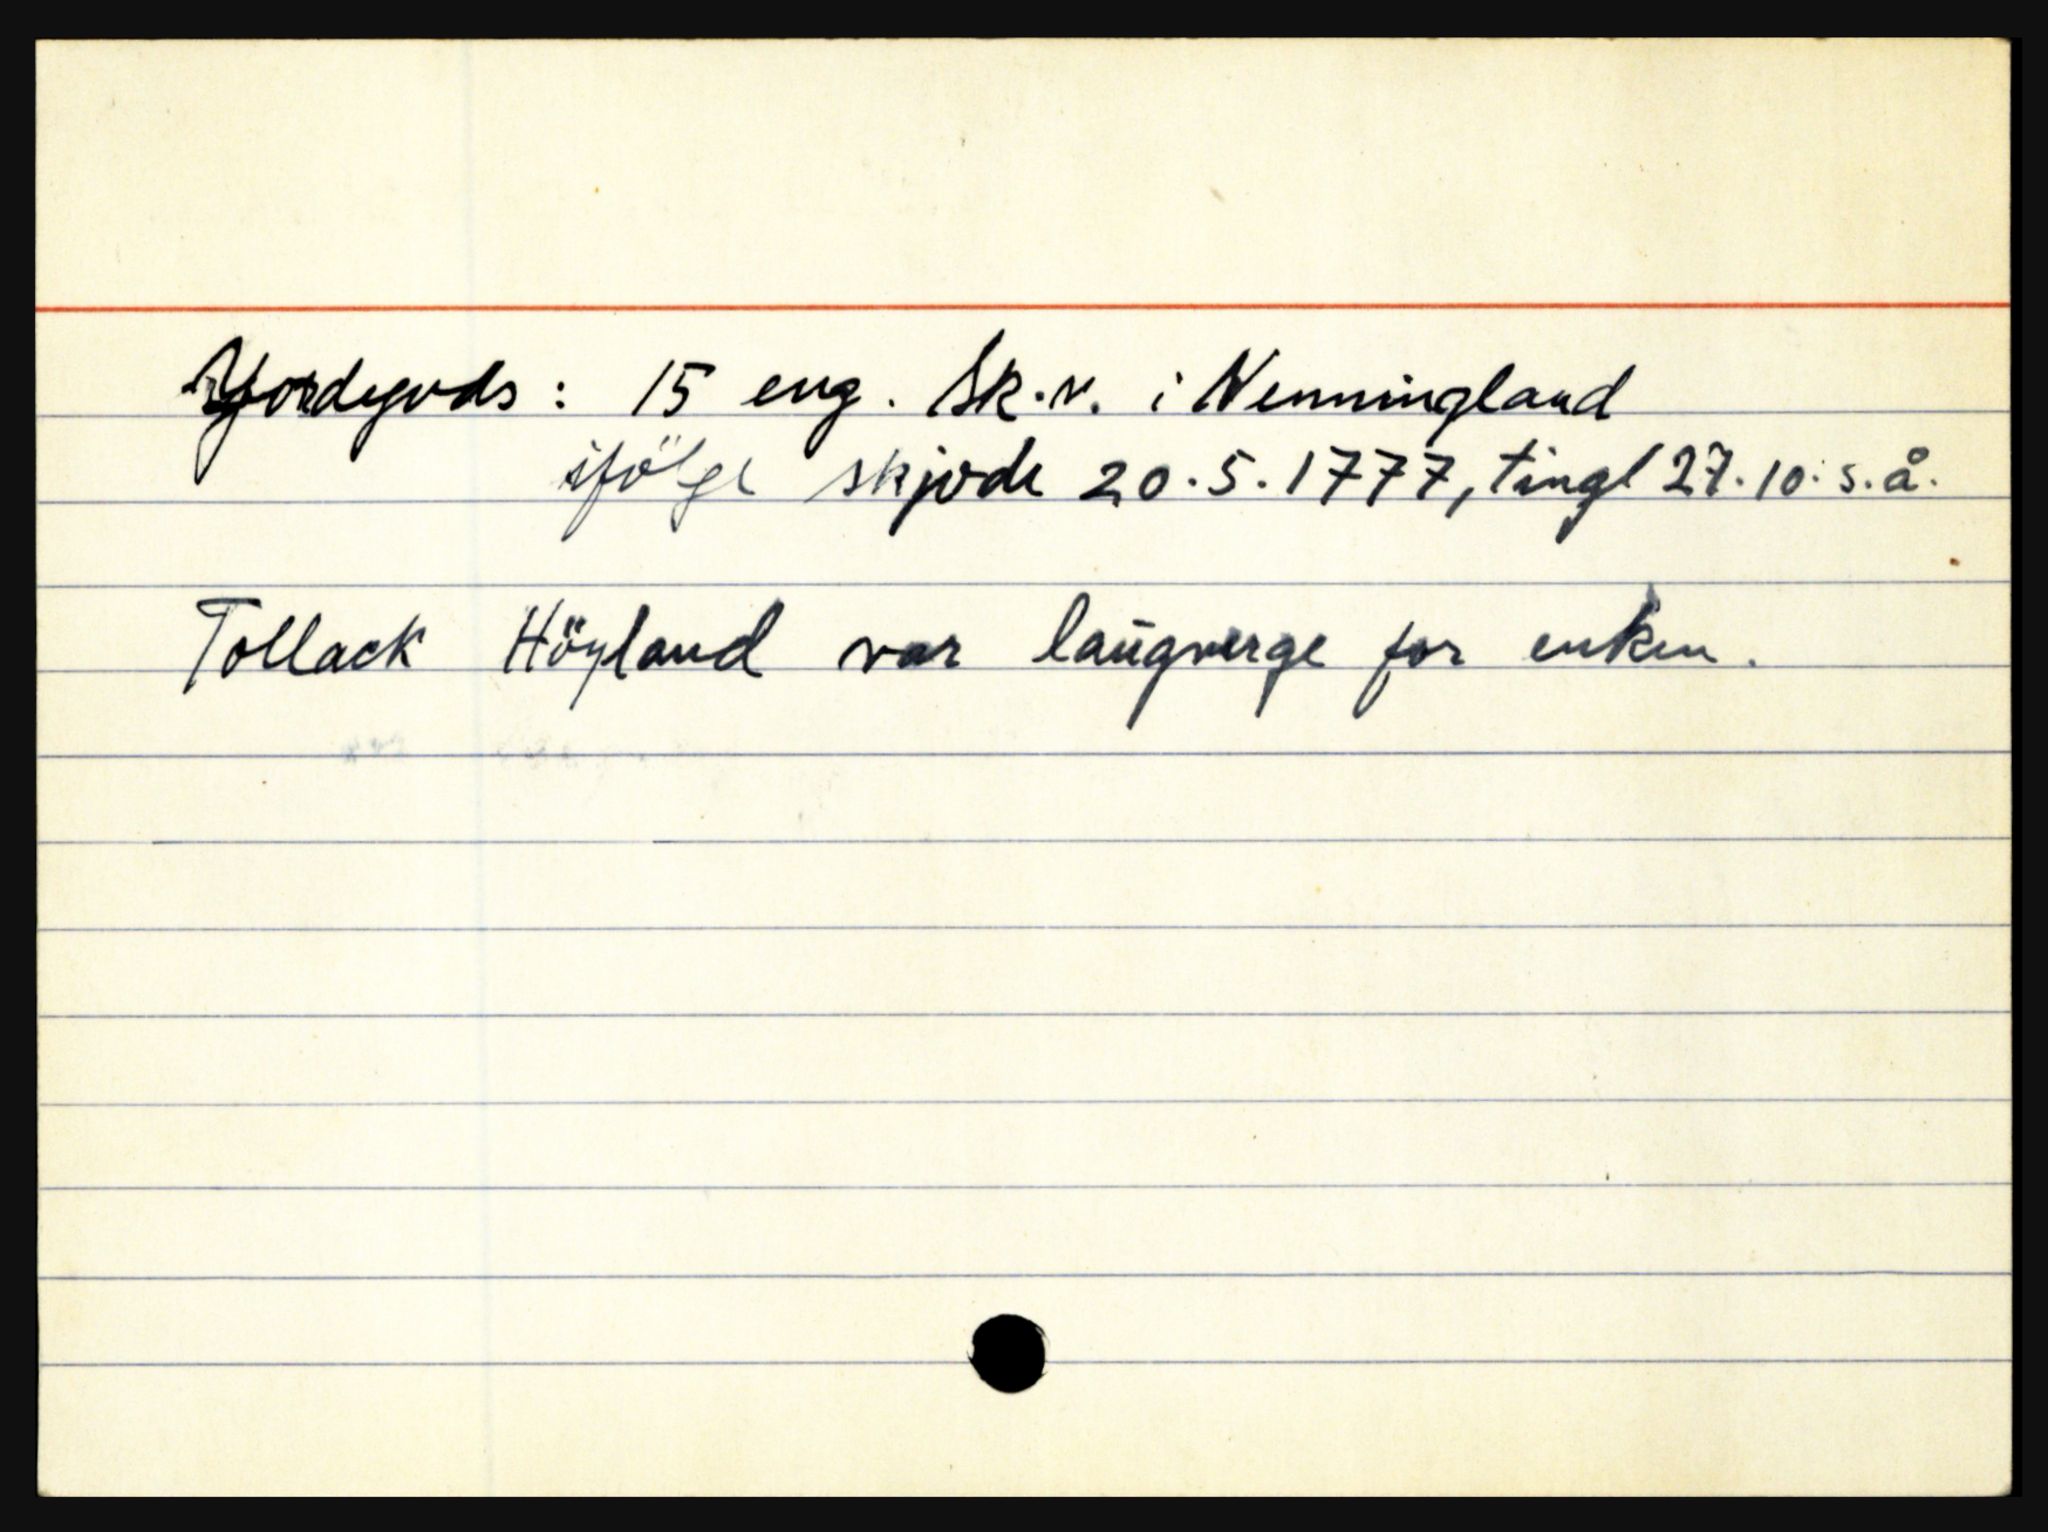 Jordegods: 15 eng. sk.v. i Nenningland
ifölge skjøde 20.5.1777, tingl 27.10. s.å.
Tollack Höyland var laugverge for enken.